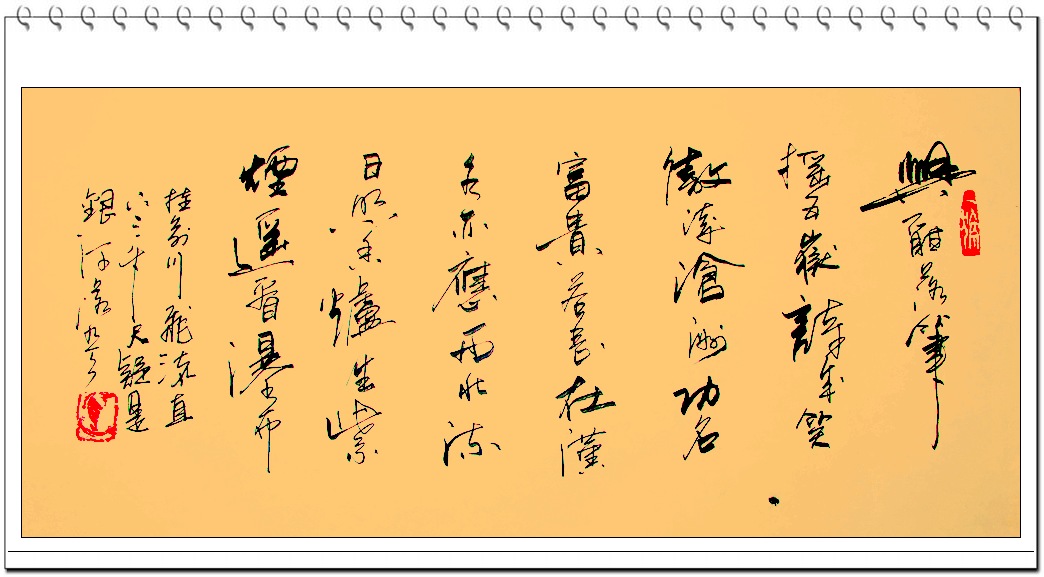 興酣落筆
搖五嶽詩成笑
傲凌滄洲功名
富貴若長在漢
水亦應西北流
日照香爐生紫
煙遥看瀑布
挂前川飛流直
下三千尺疑是
銀河落九天